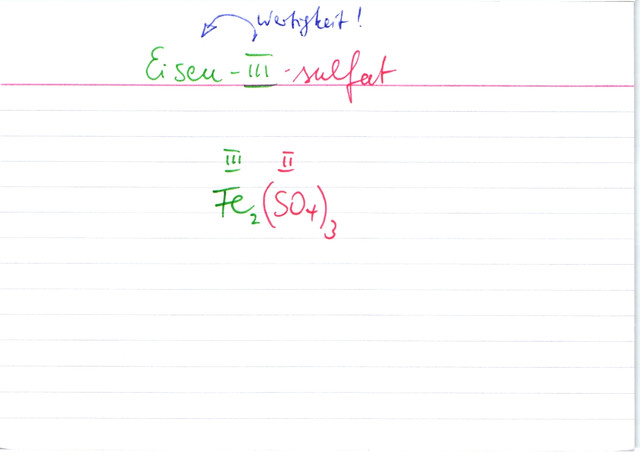 Wertigkeit!
Eisen-III-sulfat
III II
Fe₂(SO₄)₃